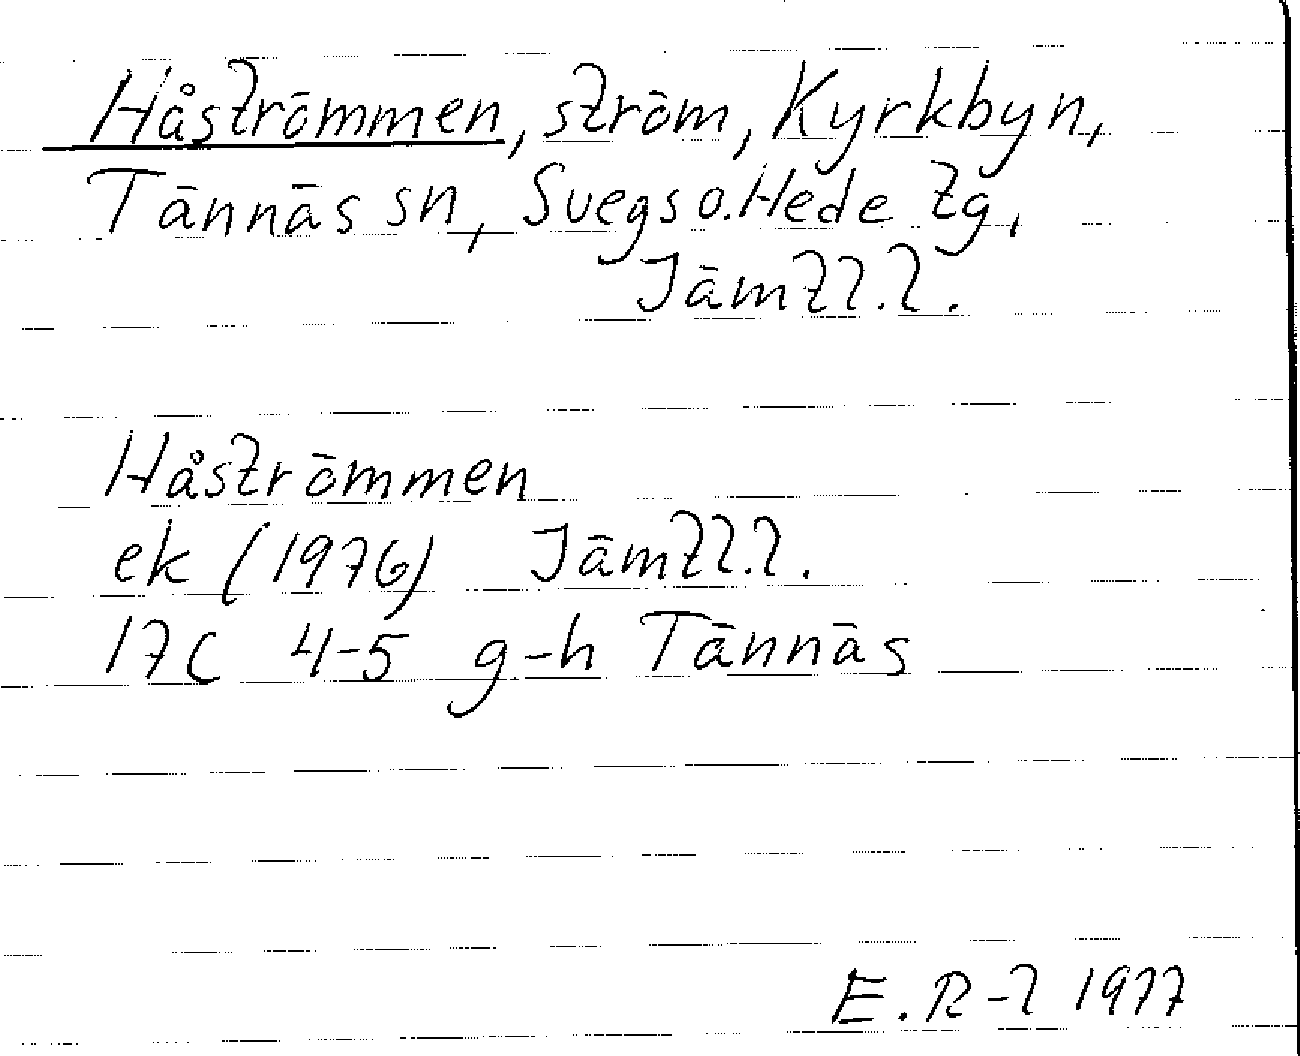 Håströmmen, ström, Kyrkbyn,
Tännäs sn, Svegs o. Hede tg,
Jämtl.l.
Håströmmen
ek (1976) Jämtl.l.
17C 4-5 g-h Tännäs
E.R-l 1977